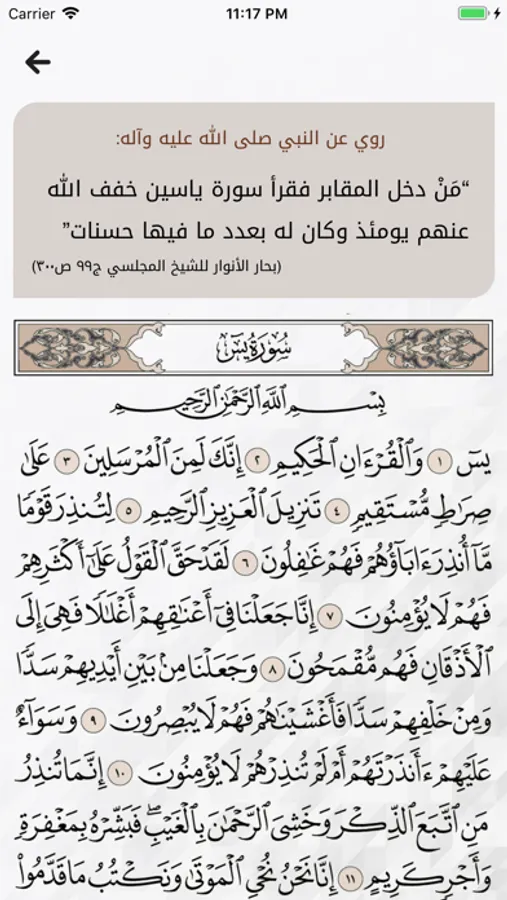 Carrier 11:17 PM
روي عن النبي صلى الله عليه وآله:
“مَنْ دخل المقابر فقرأ سورة ياسين خفف الله
عنهم يومئذ وكان له بعدد ما فيها حسنات”
(بحار الأنوار للشيخ المجلسي ج٩٩ ص٣٠٠)
سُورَةُ يسٓ
بِسْمِ ٱللَّهِ ٱلرَّحْمَٰنِ ٱلرَّحِيمِ
يسٓ ١ وَٱلْقُرْءَانِ ٱلْحَكِيمِ ٢ إِنَّكَ لَمِنَ ٱلْمُرْسَلِينَ ٣ عَلَىٰ
صِرَٰطٍ مُّسْتَقِيمٍ ٤ تَنزِيلَ ٱلْعَزِيزِ ٱلرَّحِيمِ ٥ لِتُنذِرَ قَوْمًا
مَّآ أُنذِرَ ءَابَآؤُهُمْ فَهُمْ غَٰفِلُونَ ٦ لَقَدْ حَقَّ ٱلْقَوْلُ عَلَىٰٓ أَكْثَرِهِمْ
فَهُمْ لَا يُؤْمِنُونَ ٧ إِنَّا جَعَلْنَا فِىٓ أَعْنَٰقِهِمْ أَغْلَٰلًا فَهِىَ إِلَى
ٱلْأَذْقَانِ فَهُم مُّقْمَحُونَ ٨ وَجَعَلْنَا مِنۢ بَيْنِ أَيْدِيهِمْ سَدًّا
وَمِنْ خَلْفِهِمْ سَدًّا فَأَغْشَيْنَٰهُمْ فَهُمْ لَا يُبْصِرُونَ ٩ وَسَوَآءٌ
عَلَيْهِمْ ءَأَنذَرْتَهُمْ أَمْ لَمْ تُنذِرْهُمْ لَا يُؤْمِنُونَ ١٠ إِنَّمَا تُنذِرُ
مَنِ ٱتَّبَعَ ٱلذِّكْرَ وَخَشِىَ ٱلرَّحْمَٰنَ بِٱلْغَيْبِ ۖ فَبَشِّرْهُ بِمَغْفِرَةٍ
وَأَجْرٍ كَرِيمٍ ١١ إِنَّا نَحْنُ نُحْىِ ٱلْمَوْتَىٰ وَنَكْتُبُ مَا قَدَّمُوا۟